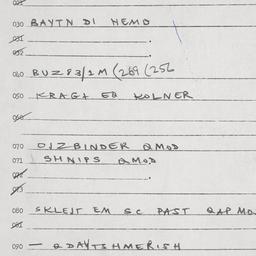 030 BAYTN DI NEMO
031
032
040 BUZ83/1M (269 (256
050 KRAGA EB KOLNER
060
070 OJZBINDER QMOD
071 SHNIPS QMOD
080 SKLEJT EM SC PAST QAP MO
081
090 — QDAYTSHMERISH